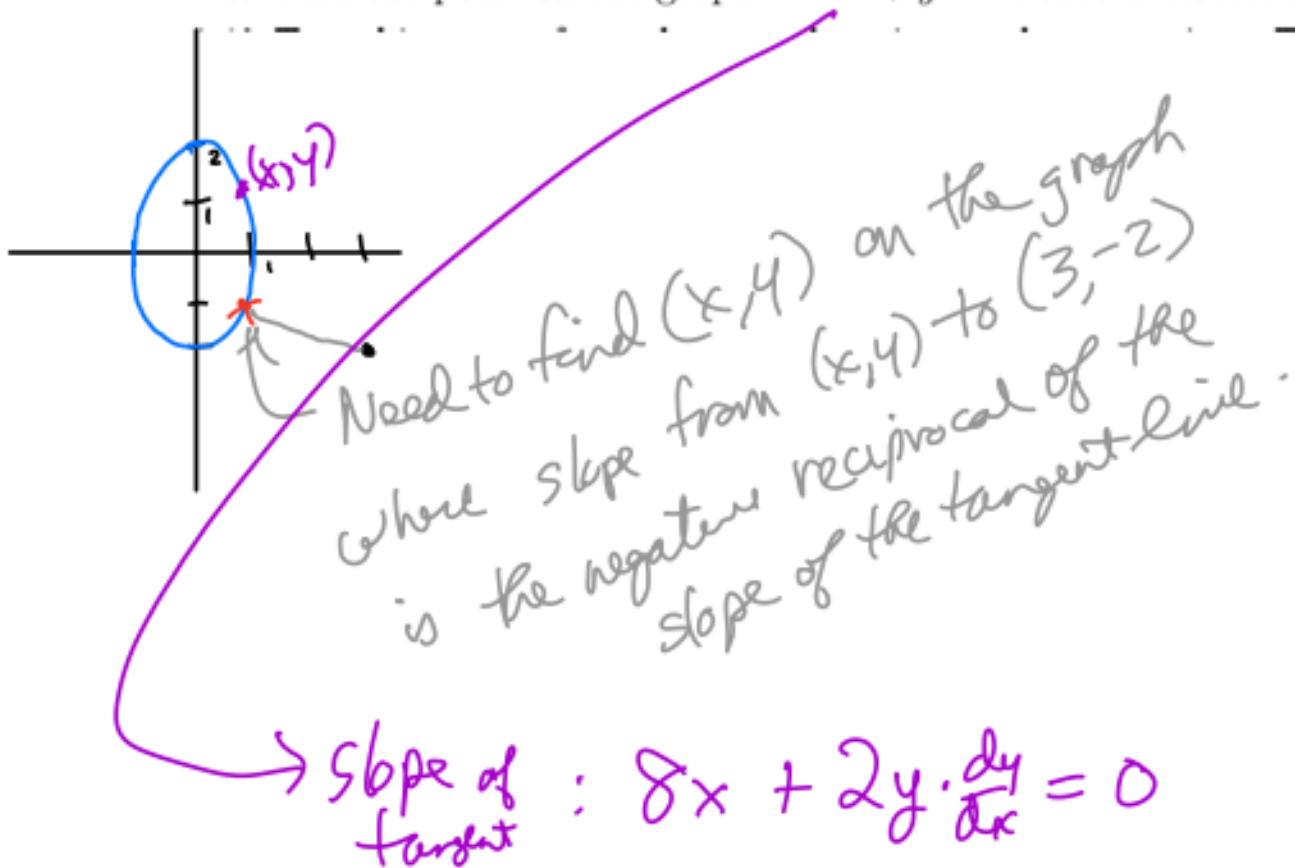 2
(x,y)
1
1
Need to find (x,y) on the graph
where slope from (x,y) to (3,-2)
is the negative reciprocal of the
slope of the tangent line.
slope of tangent : 8x + 2y · dy/dx = 0